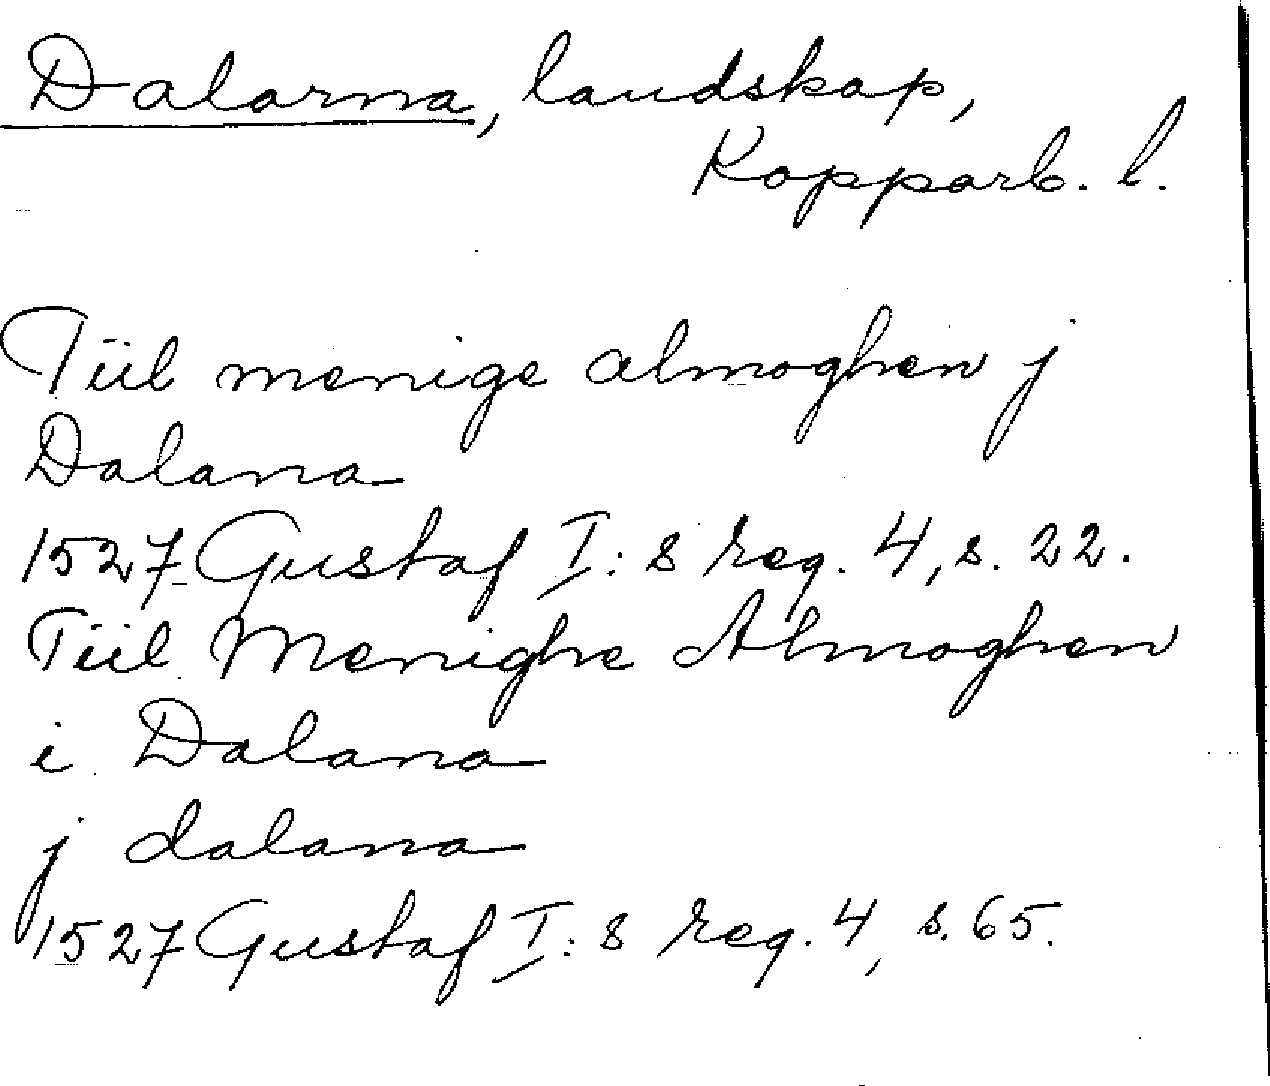 Dalarna, landskap,
Kopparb. l.
Tiil menige almoghen j
Dalana
1527 Gustaf I:s reg. 4, s. 22.
Tiil Menighe Almoghen
i Dalana
j dalana
1527 Gustaf I:s reg. 4, s. 65.